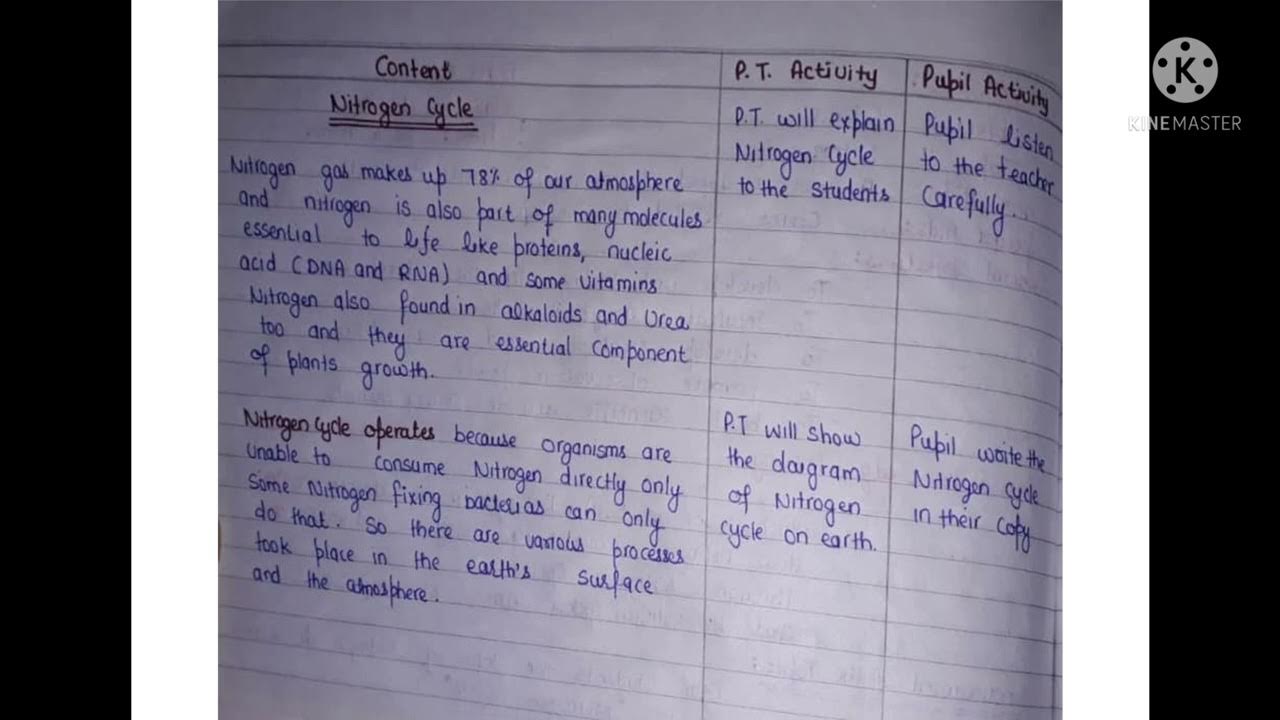 Content
P.T. Activity
Pupil Activity
Nitrogen Cycle
Nitrogen gas makes up 78% of our atmosphere
and nitrogen is also part of many molecules
essential to life like proteins, nucleic
acid (DNA and RNA) and some vitamins
Nitrogen also found in alkaloids and Urea
too and they are essential component
of plants growth.
P.T. will explain
Nitrogen Cycle
to the students
Pupil listen
to the teacher
Carefully.
Nitrogen Cycle operates because organisms are
unable to consume Nitrogen directly only
some Nitrogen fixing bacterias can only
do that. So there are various processes
took place in the earth's surface
and the atmosphere.
P.T will show
the daigram
of Nitrogen
cycle on earth.
Pupil woite the
Nitrogen cycle
in their copy
K
KINEMASTER